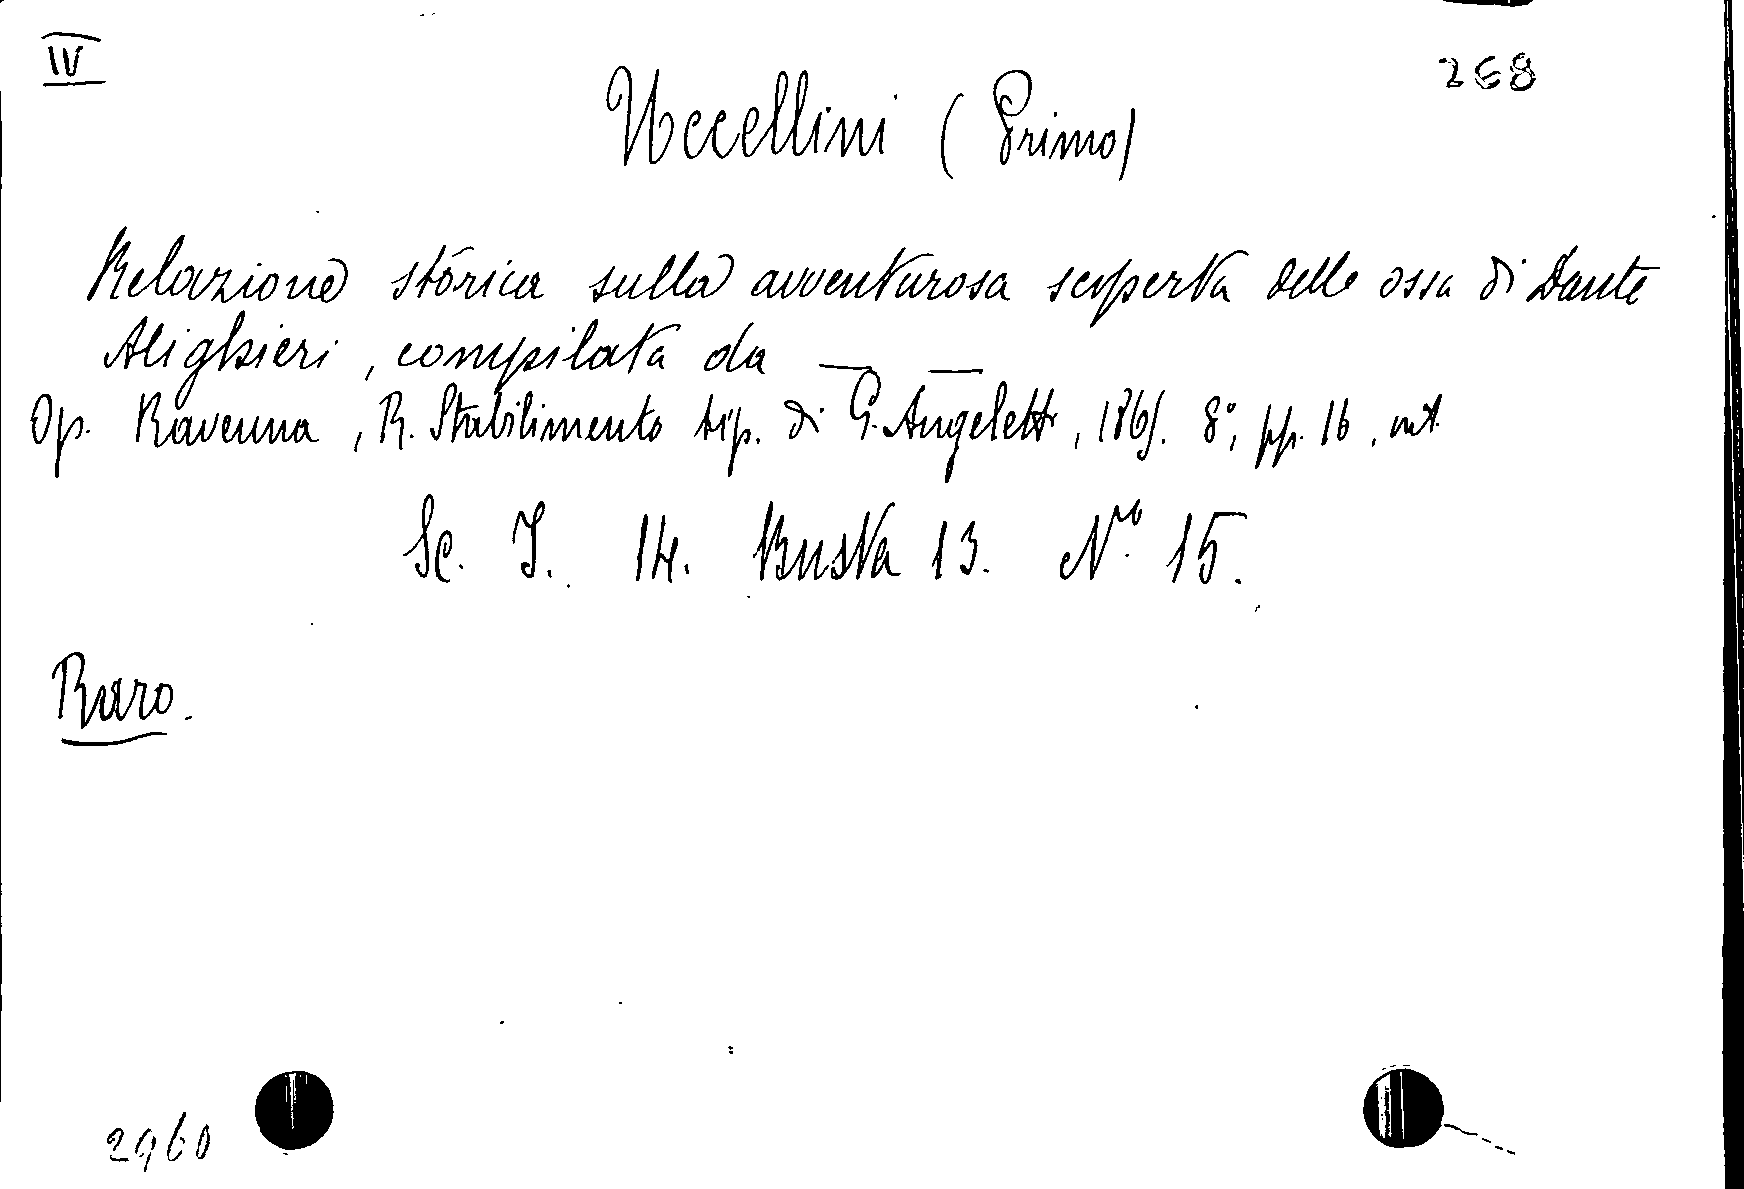 IV
268
Uccellini (Primo)
Relazione storica sulla avventurosa scoperta delle ossa di Dante
Alighieri, compilata da — —
Op. Ravenna, R. Stabilimento tip. di G. Angeletti, 1865. 8°, pp. 16, int.
Sc. I. 14. Busta 13. N° 15.
Raro.
2960